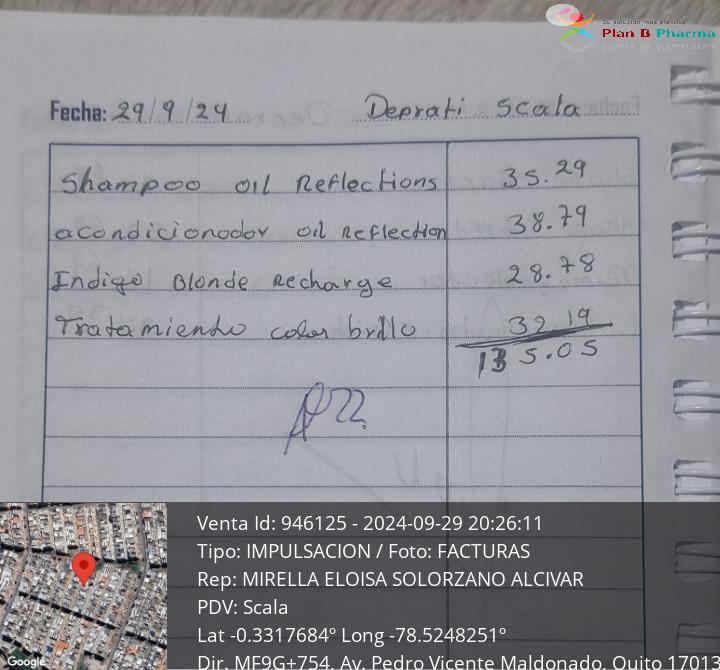 Su solución más efectiva!
Plan B Pharma
Fecha: 29/9/24 Deprati Scala
Shampoo oil Reflections 35.29
acondicionador oil Reflection 38.79
Indigo Blonde Recharge 28.78
Tratamiento color brillo 32 19
135.05
Venta Id: 946125 - 2024-09-29 20:26:11
Tipo: IMPULSACION / Foto: FACTURAS
Rep: MIRELLA ELOISA SOLORZANO ALCIVAR
PDV: Scala
Lat -0.3317684º Long -78.5248251º
Dir. MF9G+754, Av. Pedro Vicente Maldonado, Quito 17013
Google